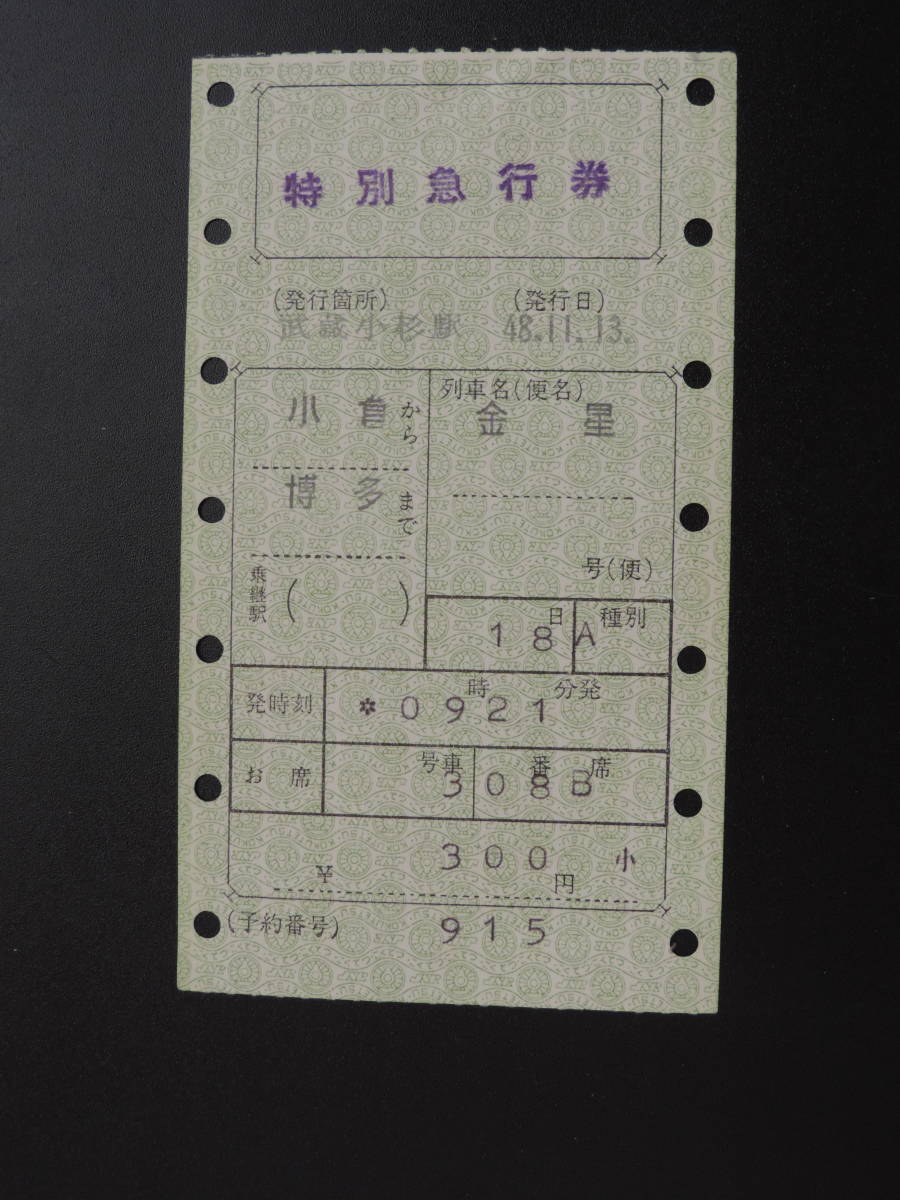 特別急行券
(発行箇所) (発行日)
武蔵小杉駅 48.11.13.
小倉から
博多まで
乗継駅 ( )
列車名(便名)
金星
号(便)
日 種別
18 A
発時刻 時 分発
*0921
お席 号車 番 席
3 08B
¥ 300円 小
(予約番号) 915